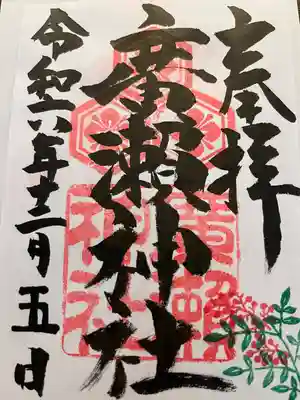 奉拝
廣瀬神社
廣瀬
神社
令和六年十二月五日